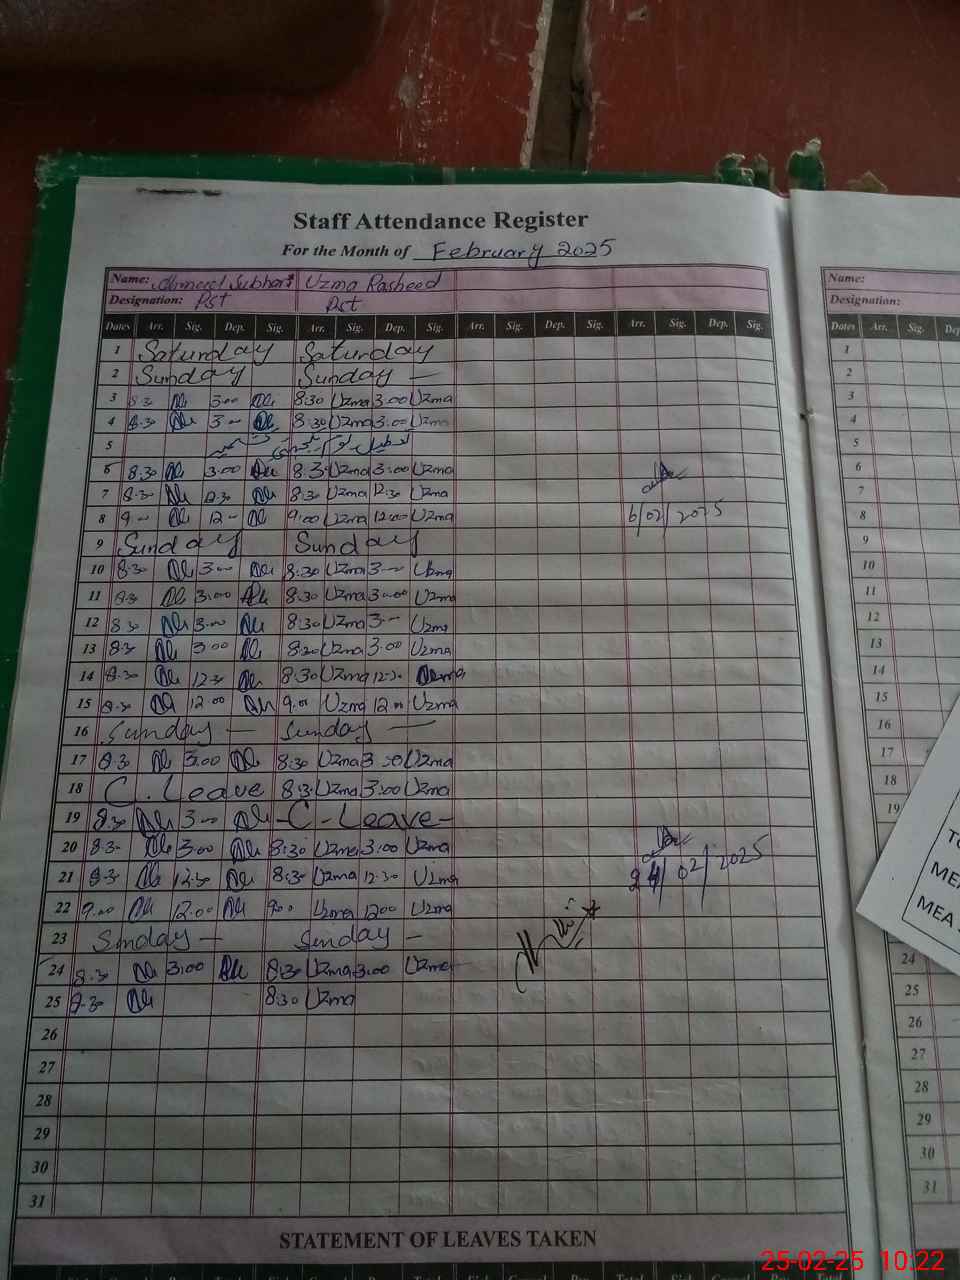 Staff Attendance Register
For the Month of February 2025
Name: Ahmed Subhani Uzma Rasheed
Designation: Pst Pst
Dates Arr. Sig. Dep. Sig. Arr. Sig. Dep. Sig. Arr. Sig. Dep. Sig. Arr. Sig. Dep. Sig.
1 Saturday Saturday
2 Sunday Sunday —
3 8:30 3:00 8:30 Uzma 3:00 Uzma
4 8:30 3:— 8:30 Uzma 3:00 Uzma
5
6 8:30 3:00 8:3 Uzma 3:00 Uzma
7 8:30 12:30 8:30 Uzma 12:30 Uzma
8 9:— 12:— 9:00 Uzma 12:00 Uzma
6/02/2025
9 Sunday Sunday
10 8:30 3:00 8:30 Uzma 3:— Uzma
11 8:30 3:00 8:30 Uzma 3:00 Uzma
12 8:30 3:00 8:30 Uzma 3:— Uzma
13 8:30 3:00 8:30 Uzma 3:00 Uzma
14 8:30 12:30 8:30 Uzma 12:30 Uzma
15 8:30 12:00 9:00 Uzma 12:00 Uzma
16 Sunday — Sunday —
17 8:30 3:00 8:30 Uzma 3:00 Uzma
18 C. Leave 8:30 Uzma 3:00 Uzma
19 8:30 3:00 - C - Leave -
20 8:30 3:00 8:30 Uzma 3:00 Uzma
21 8:30 12:30 8:30 Uzma 12:30 Uzma
24/02/2025
22 9:00 12:00 9:00 Uzma 12:00 Uzma
23 Sunday — Sunday —
24 8:30 3:00 8:30 Uzma 3:00 Uzma
25 8:30 8:30 Uzma
26
27
28
29
30
31
STATEMENT OF LEAVES TAKEN
Name:
Designation:
Dates Arr. Sig.
1
2
3
4
5
6
7
8
9
10
11
12
13
14
15
16
17
18
19
24
25
26
27
28
29
30
31
MEA
MEA
25-02-25 10:22